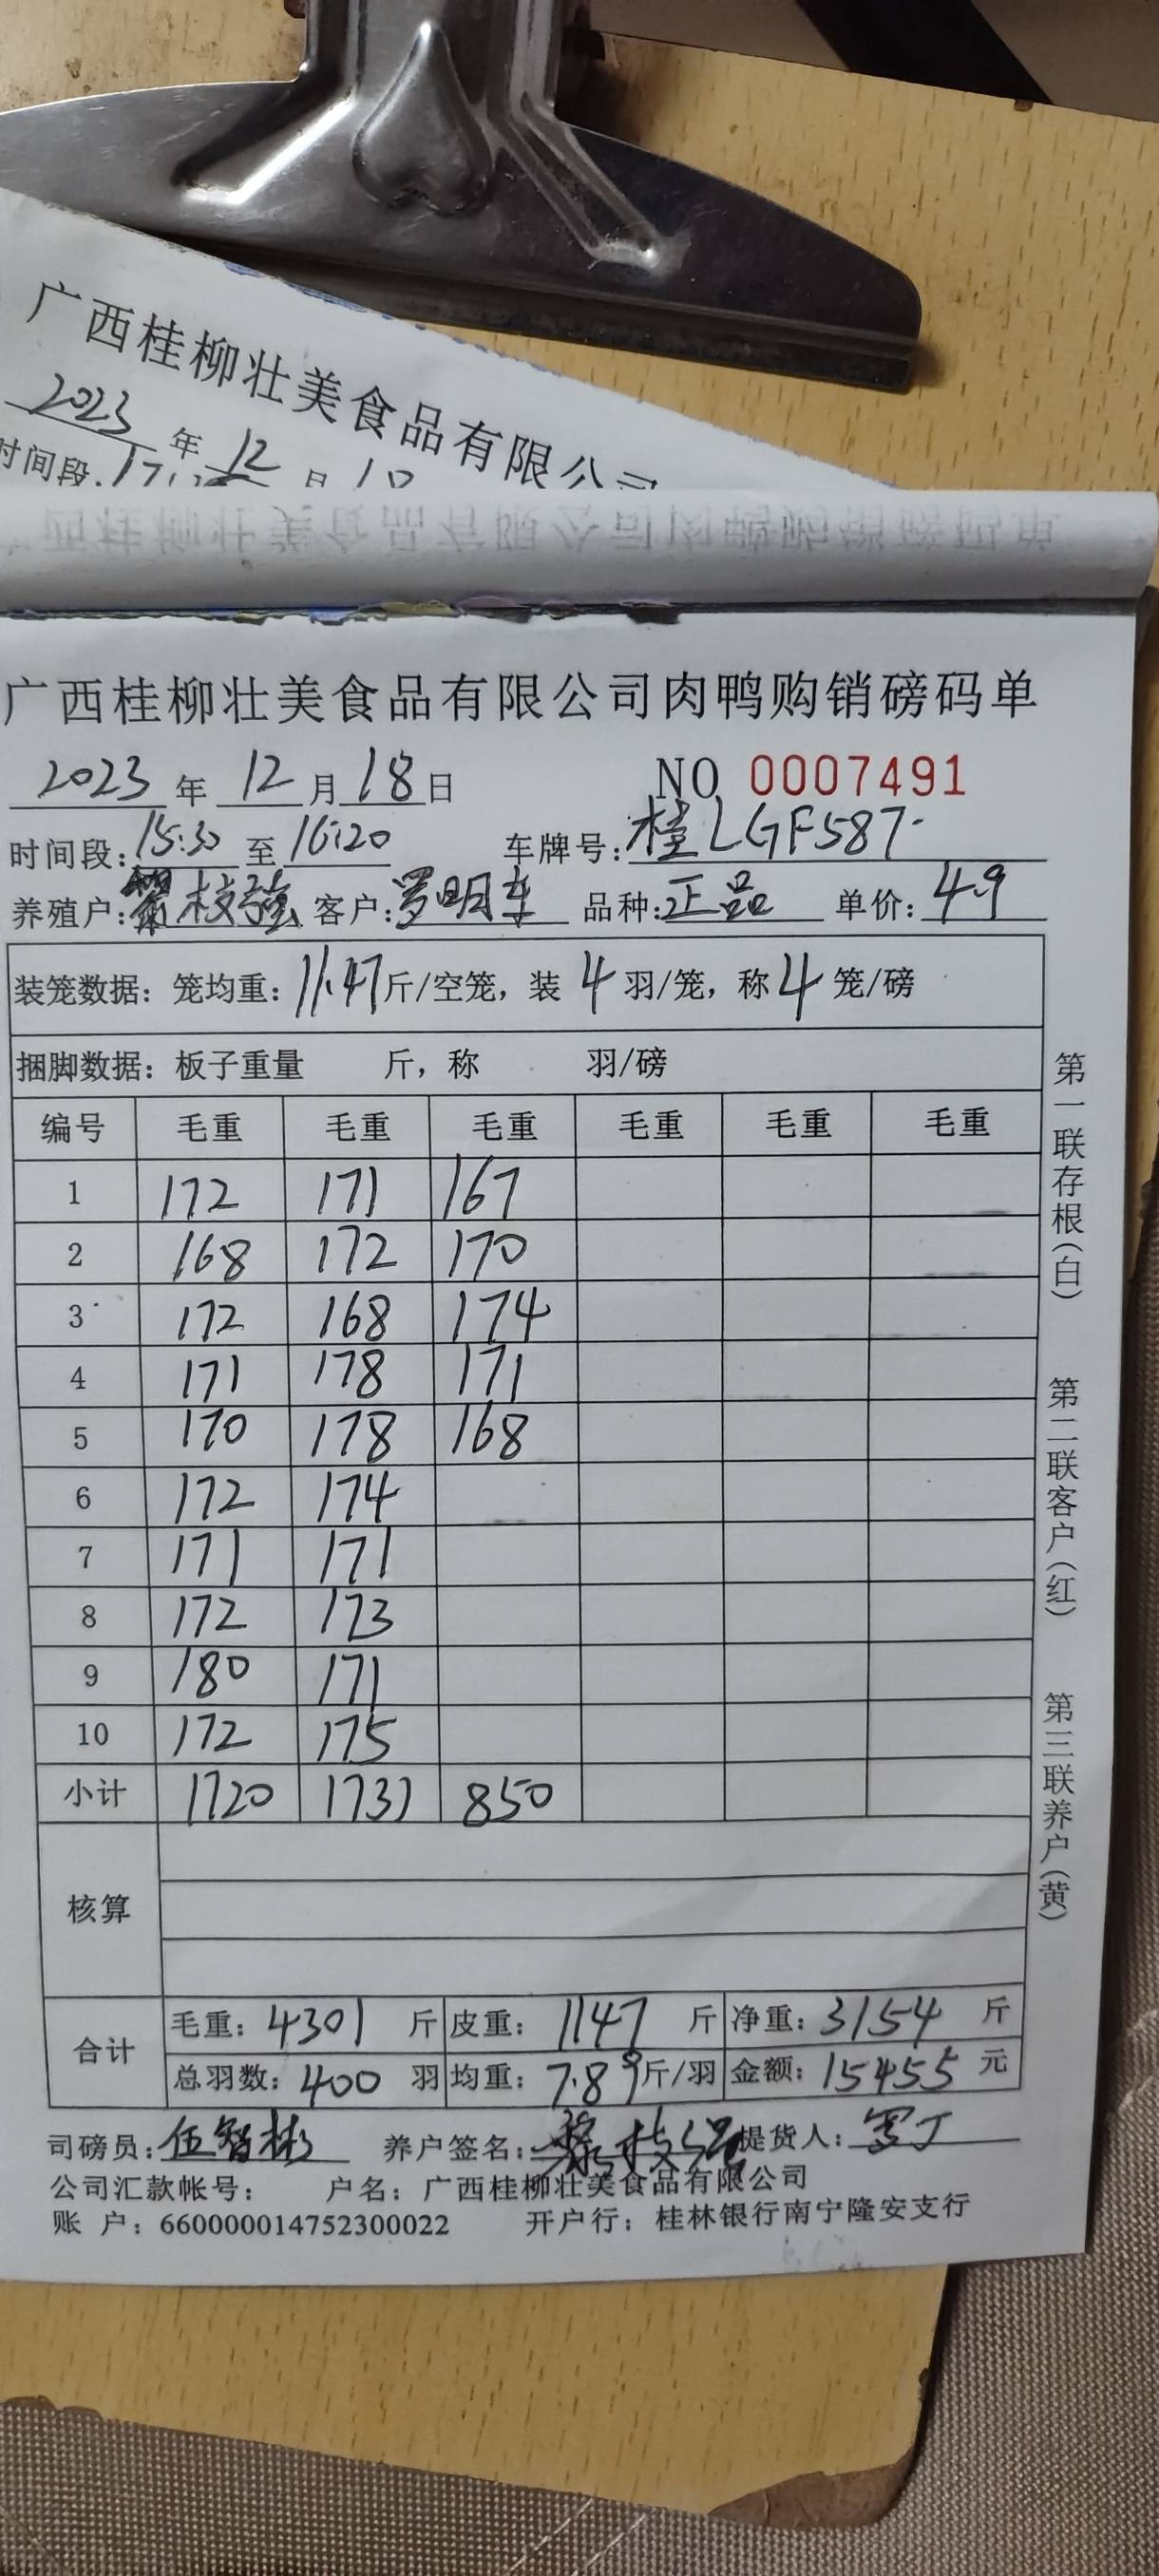 广西桂柳壮美食品有限公司
2023年12月18
时间段:
广西桂柳壮美食品有限公司肉鸭购销磅码单
2023年12月18日 NO 0007491
时间段:15:30至16:20 车牌号:桂LGF587
养殖户:枝强 客户:罗明东 品种:正品 单价:4.9
装笼数据：笼均重：11.47斤/空笼，装4羽/笼，称4笼/磅
捆脚数据：板子重量 斤，称 羽/磅
编号 毛重 毛重 毛重 毛重 毛重 毛重
1 172 171 167
2 168 172 170
3 172 168 174
4 171 178 171
5 170 178 168
6 172 174
7 171 171
8 172 173
9 180 171
10 172 175
小计 1720 1731 850
核算
合计 毛重：4301斤 皮重：1147斤 净重：3154斤
总羽数：400羽 均重：7.89斤/羽 金额：15455元
司磅员:伍智彬 养户签名:黎枝强 提货人:罗丁
公司汇款帐号： 户名：广西桂柳壮美食品有限公司
账 户：660000014752300022 开户行：桂林银行南宁隆安支行
第一联存根(白) 第二联客户(红) 第三联养户(黄)